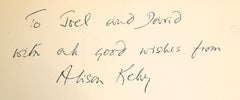 To Joel and David
with all good wishes from
Alison Kelly